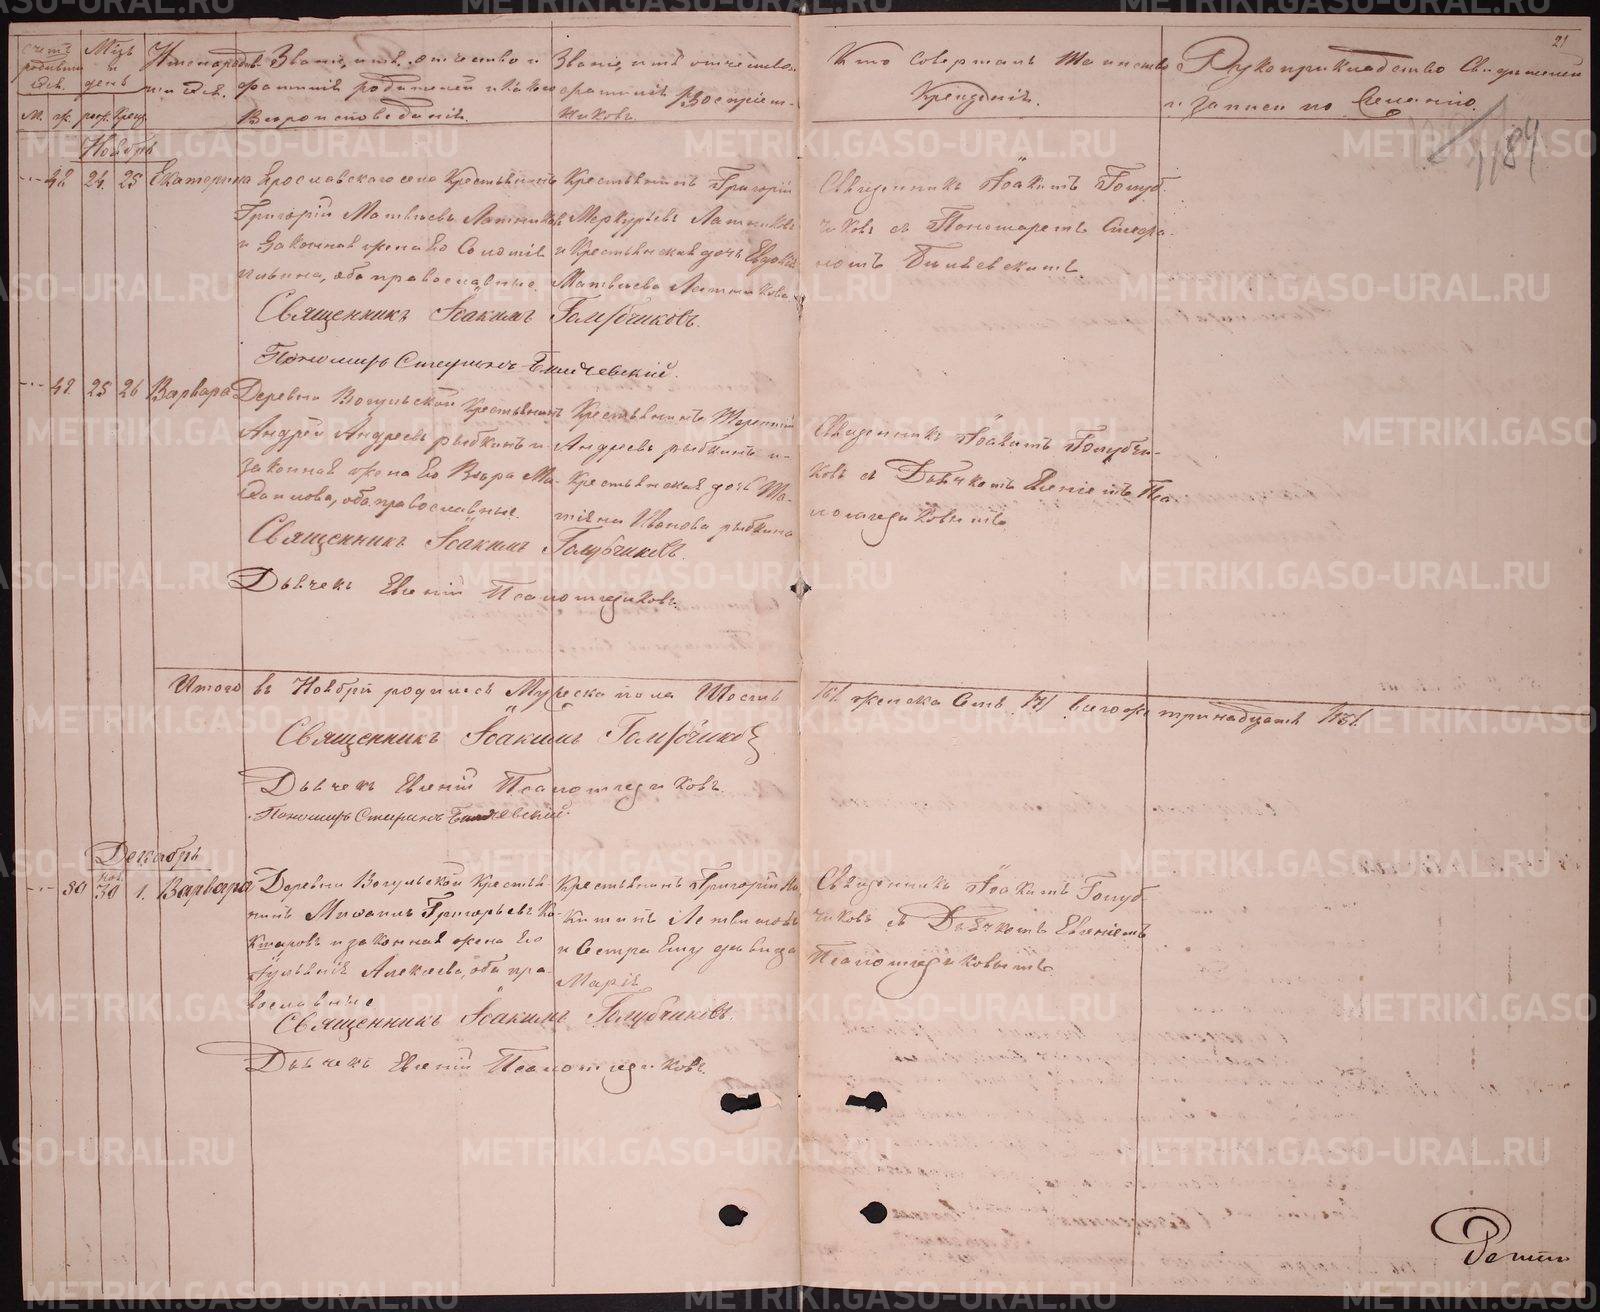 21
Счетъ родившихся.
Мѣць и день
Имена родив-
шихся.
Званіе, имя, отчество и
фамилія родителей и какого
Вѣроисповѣданія.
Званіе, имя, отчество,
фамилія Воспріем-
никовъ.
Кто совершалъ Таинство
Крещенія.
Рукоприкладство Свидѣтелей
записи по желанію.
м. ж. рож. Крещ.
84
Ноябрь
24. 25 Екатерина
Ярославскаго села Крестьянинъ
Григорій Матвѣевъ Латниковъ
и Законная жена его Соломія
Ильина, оба православные.
Крестьянинъ Григорій
Меркурьевъ Латниковъ
и Крестьянская дочь Евдокія
Матвѣева Латникова
Священникъ Іоакимъ Голуб-
чиковъ съ Пономаремъ Стефа-
номъ
Священникъ Іоакимъ Голубчиковъ.
Пономарь Стефанъ
25 26 Варвара
Деревни Вогульской Крестьянинъ
Андрей Андреевъ рыбкинъ и
законная жена его Вѣра Ма-
оба православные.
Крестьянинъ Терентій
Андреевъ рыбкинъ и
Крестьянская дочь Та-
тіяна Иванова рыбкина
Священникъ Іоакимъ Голубчи-
ковъ съ Дьячкомъ Евгеніемъ Пса-
ломщиковымъ
Священникъ Іоакимъ Голубчиковъ.
Дьячекъ Евгеній Псаломщиковъ.
Итого въ Ноябрѣ родилось Мужеска пола Шесть /6/ женска Семь /7/ всего же тринадцать /13/.
Священникъ Іоакимъ Голубчиковъ
Дьячекъ Евгеній Псаломщиковъ.
Пономарь Стефанъ
Декабрь
Ноя.
30 1. Варвара
Деревни Вогульской Крестья-
нинъ Михаилъ Григорьевъ Ко-
и законная жена его
Гульянія Алексѣева, оба пра-
вославные
Крестьянинъ Григорій Ни-
китинъ
и Сестра Ему дѣвица
Марія
Священникъ Іоакимъ Голуб-
чиковъ съ Дьячкомъ Евгеніемъ
Псаломщиковымъ.
Священникъ Іоакимъ Голубчиковъ.
Дьячекъ Евгеній Псаломщиковъ.
METRIKI.GASO-URAL.RU